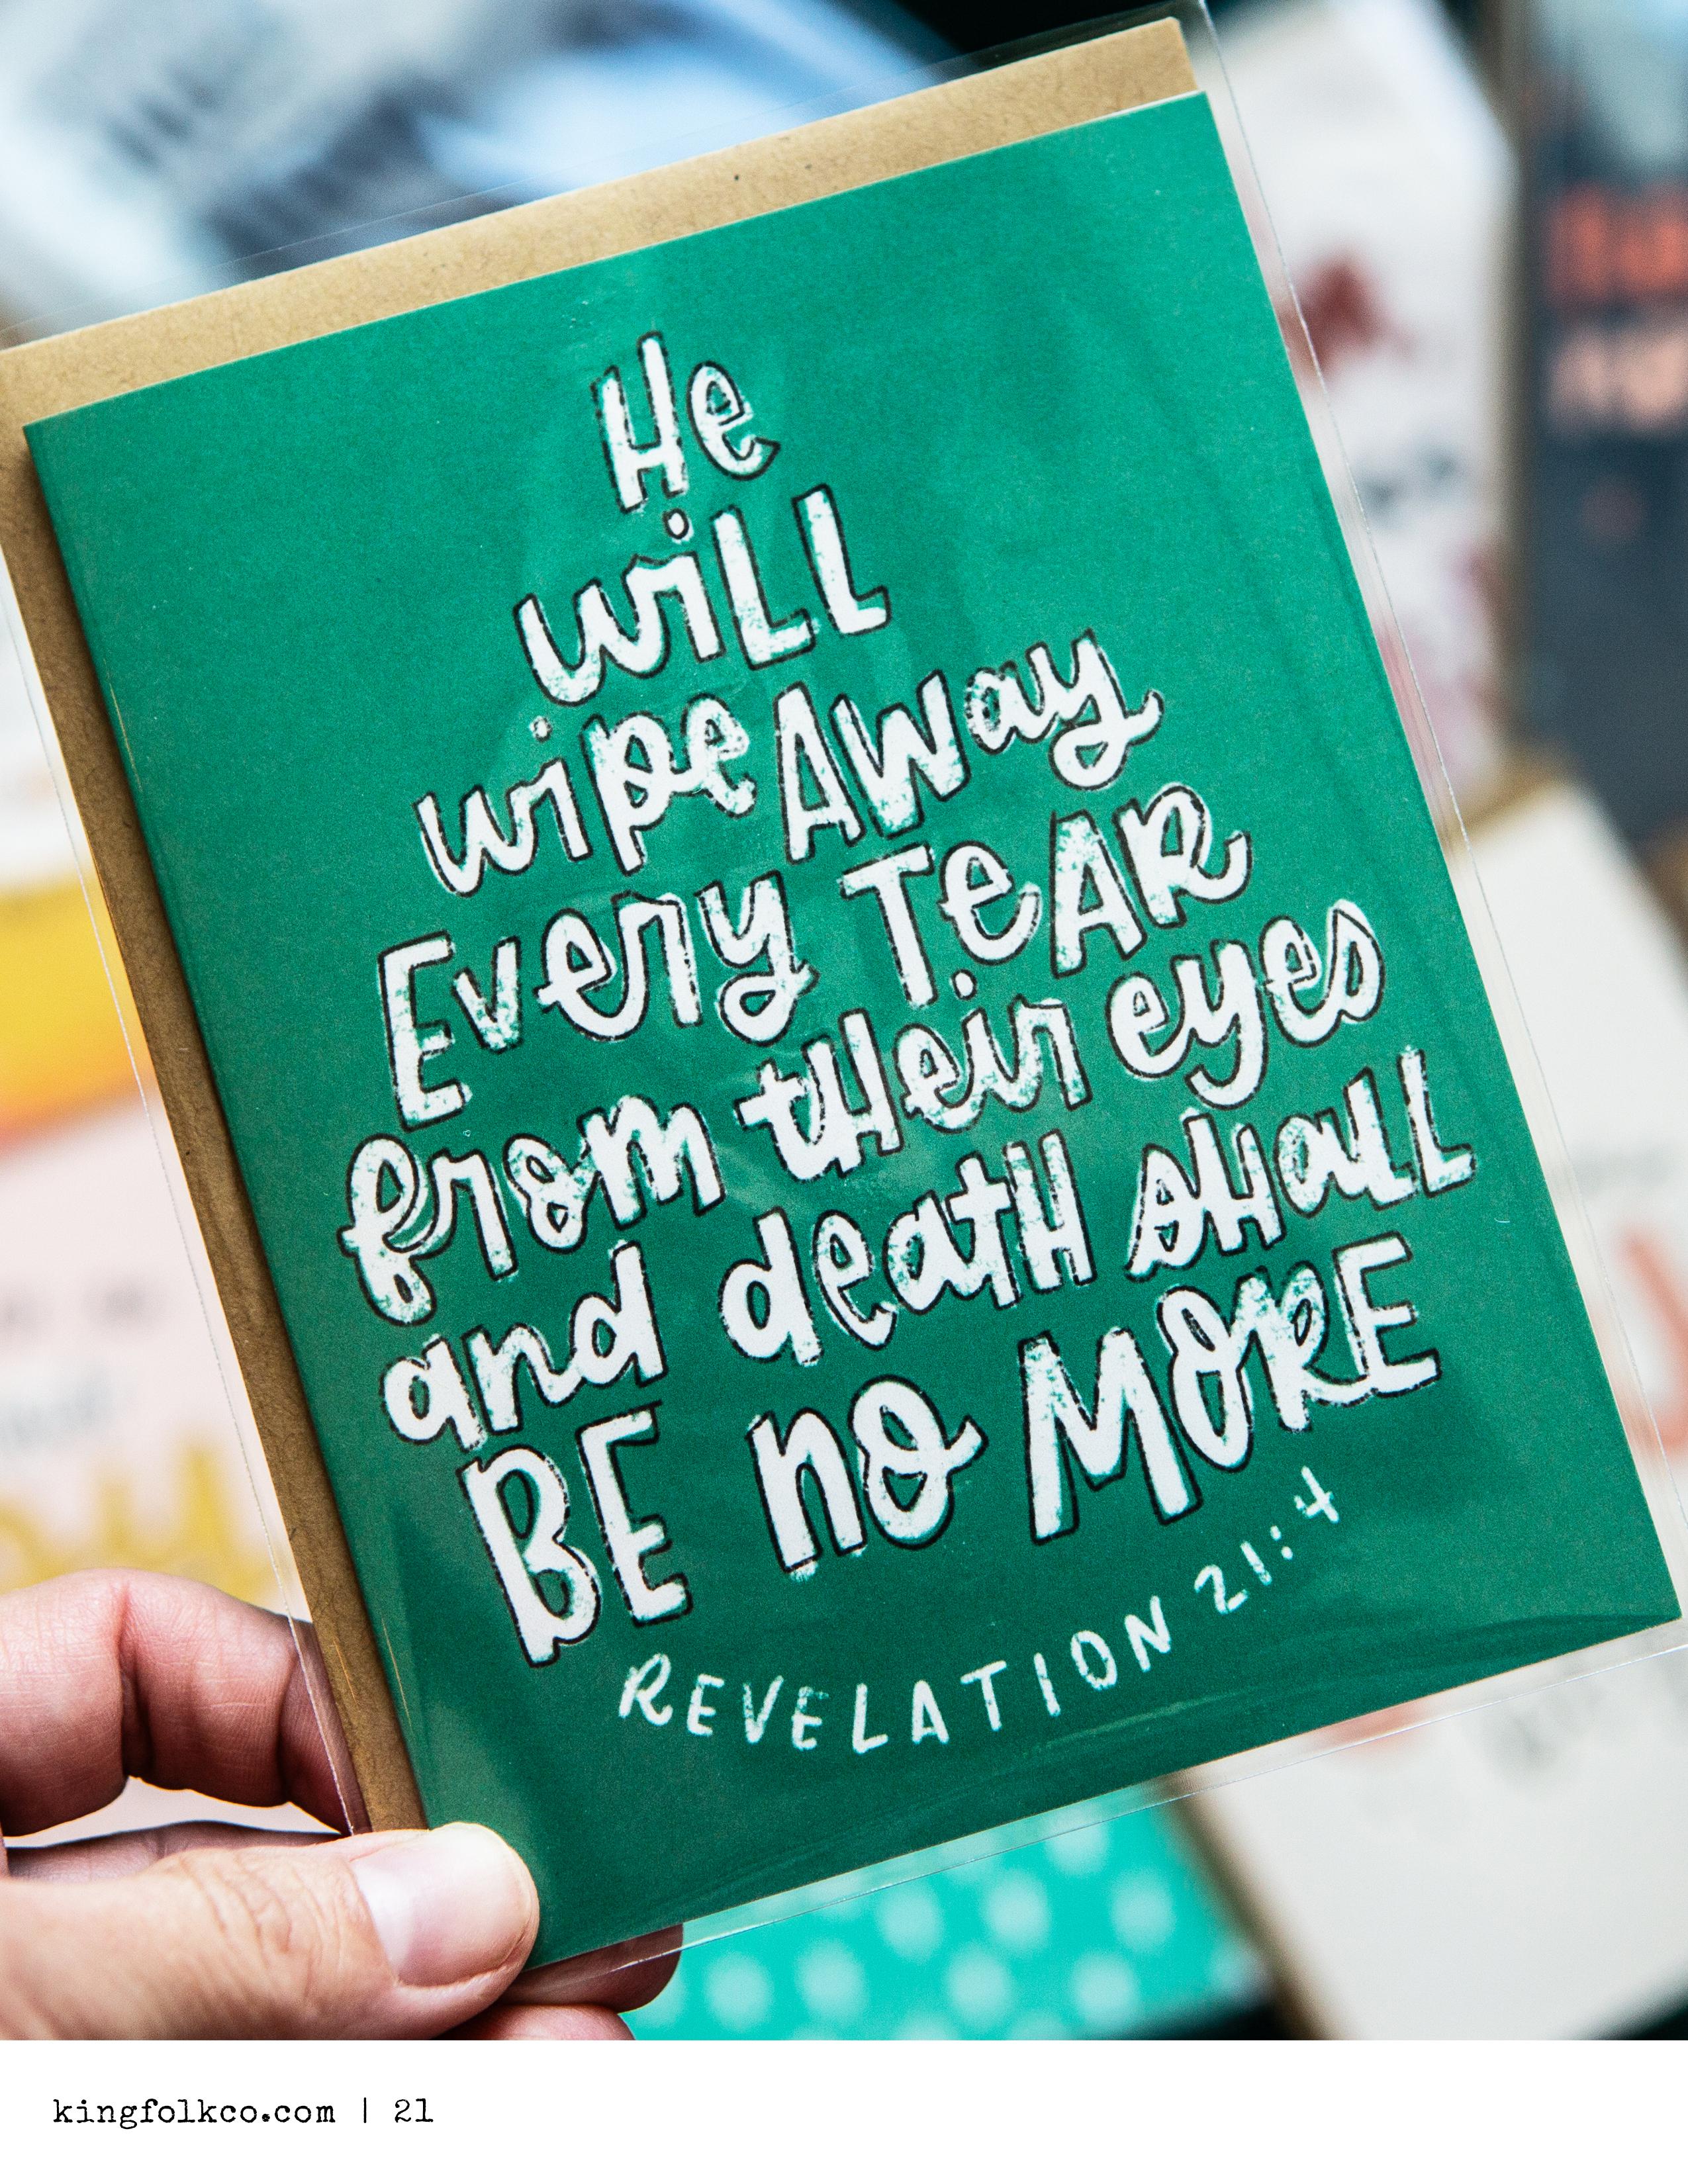 He
will
wipe Away
Every Tear
from their eyes
and death shall
BE no MORE
REVELATION 21:4
kingfolkco.com | 21